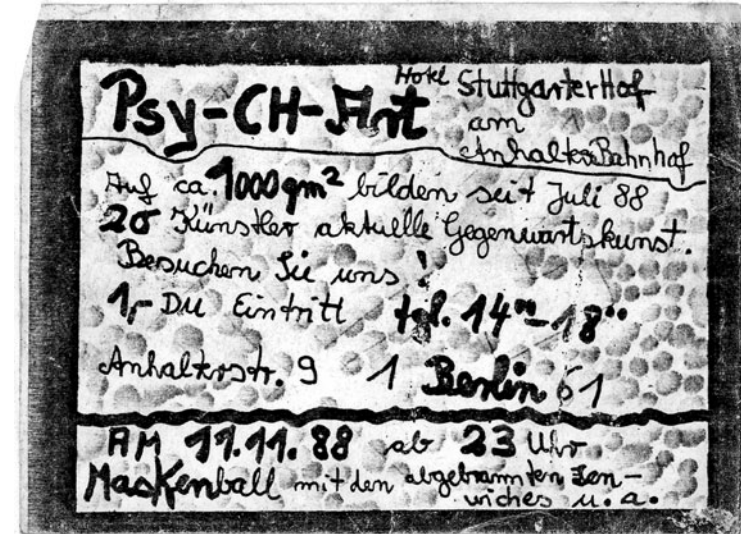 Psy-CH-Art
Hotel Stuttgarter Hof
am
Anhalter Bahnhof
Auf ca. 1000 qm² bilden seit Juli 88
20 Künstler aktuelle Gegenwartskunst.
Besuchen Sie uns!
1,- DM Eintritt tgl. 14°°-18°°
Anhalterstr. 9 1 Berlin 61
AM 11.11.88 ab 23 Uhr
Maskenball mit den abgebrannten
wiches u. a.